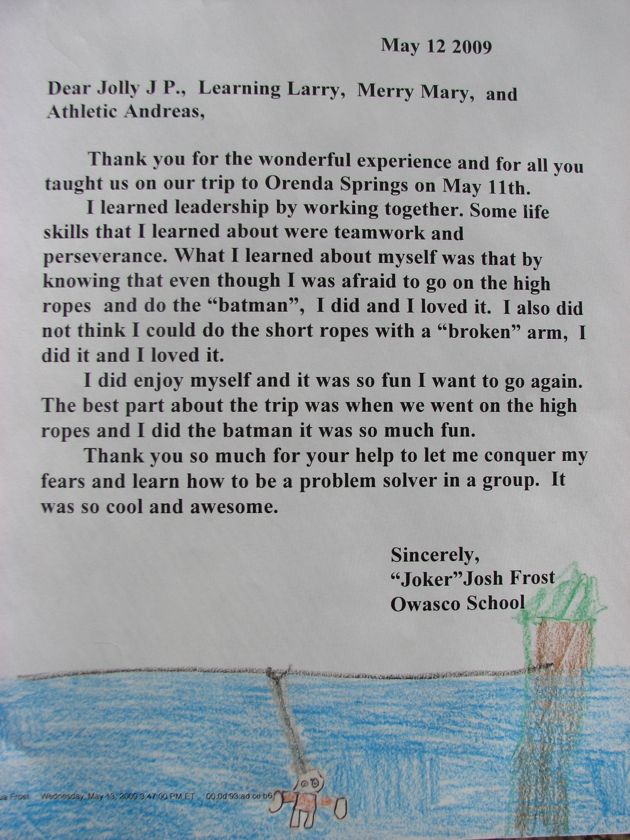 May 12 2009
Dear Jolly J P., Learning Larry, Merry Mary, and
Athletic Andreas,
Thank you for the wonderful experience and for all you
taught us on our trip to Orenda Springs on May 11th.
I learned leadership by working together. Some life
skills that I learned about were teamwork and
perseverance. What I learned about myself was that by
knowing that even though I was afraid to go on the high
ropes and do the “batman”, I did and I loved it. I also did
not think I could do the short ropes with a “broken” arm, I
did it and I loved it.
I did enjoy myself and it was so fun I want to go again.
The best part about the trip was when we went on the high
ropes and I did the batman it was so much fun.
Thank you so much for your help to let me conquer my
fears and learn how to be a problem solver in a group. It
was so cool and awesome.
Sincerely,
“Joker”Josh Frost
Owasco School
Frost Wednesday, May 13, 2009 3:47:00 PM ET